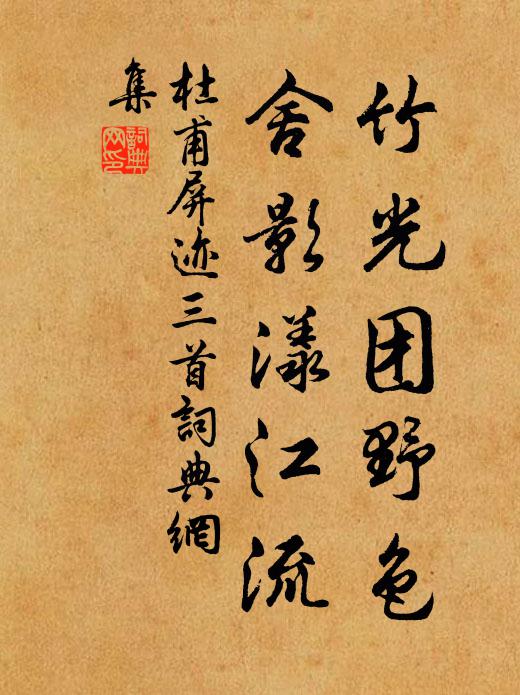 竹光团野色
舍影漾江流
杜甫屏迹三首詞典網
集
詞典
网印